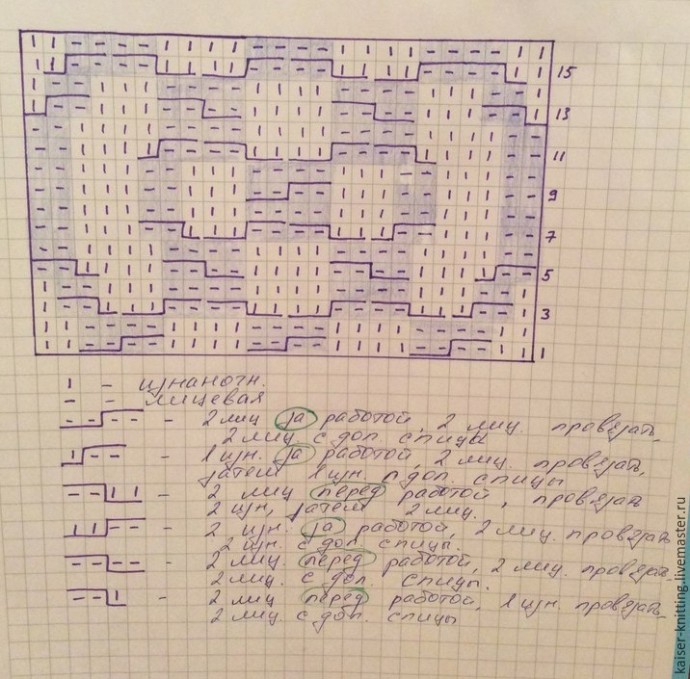 15
13
11
9
7
5
3
1
ı – изнаночн.
– – лицевая
– 2 лиц за работой, 2 лиц. провязать,
2 лиц с доп. спицы
– 1 изн. за работой, 2 лиц. провязать,
затем 1 изн. с доп. спицы
– 2 лиц перед работой, провязать
2 изн, затем 2 лиц.
– 2 изн. за работой, 2 лиц. провязать
2 изн. с доп. спицы.
– 2 лиц. перед работой, 2 лиц. провязать,
2 лиц. с доп. спицы.
– 2 лиц перед работой, 1 изн. провязать,
2 лиц. с доп. спицы
kaiser-knitting.livemaster.ru